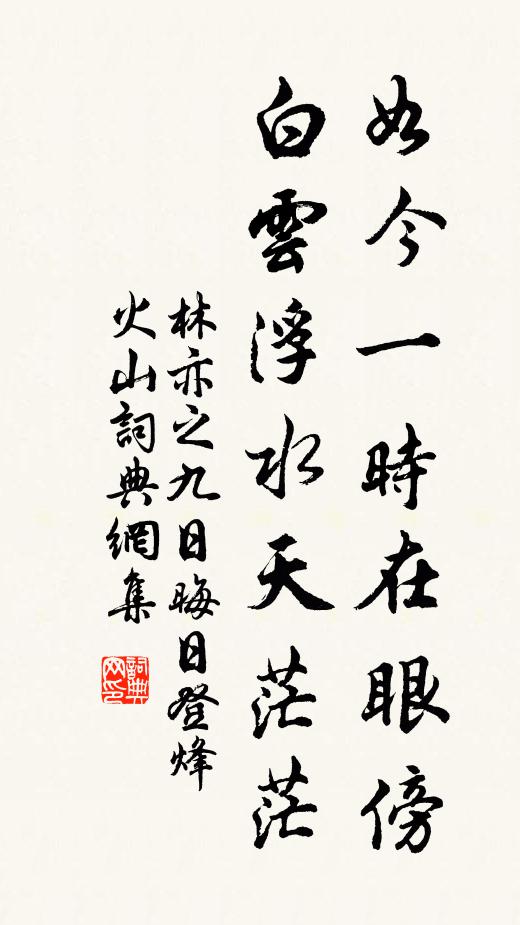 如今一時在眼傍
白雲浮水天茫茫
林亦之九日晦日登烽
火山詞典網集
詞典网印